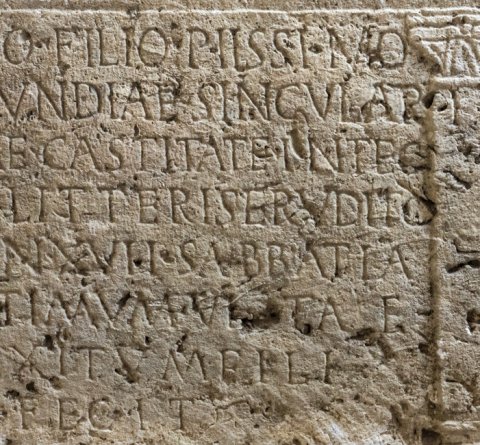 O · FILIO · PIISSIMO
VNDIAE · SINGVLAR
E · CASTITATE · INTEG
LITTERIS ERVDITO
NN · XVIII · SABBATIA
TIMVM
XITVM FILI
FECIT